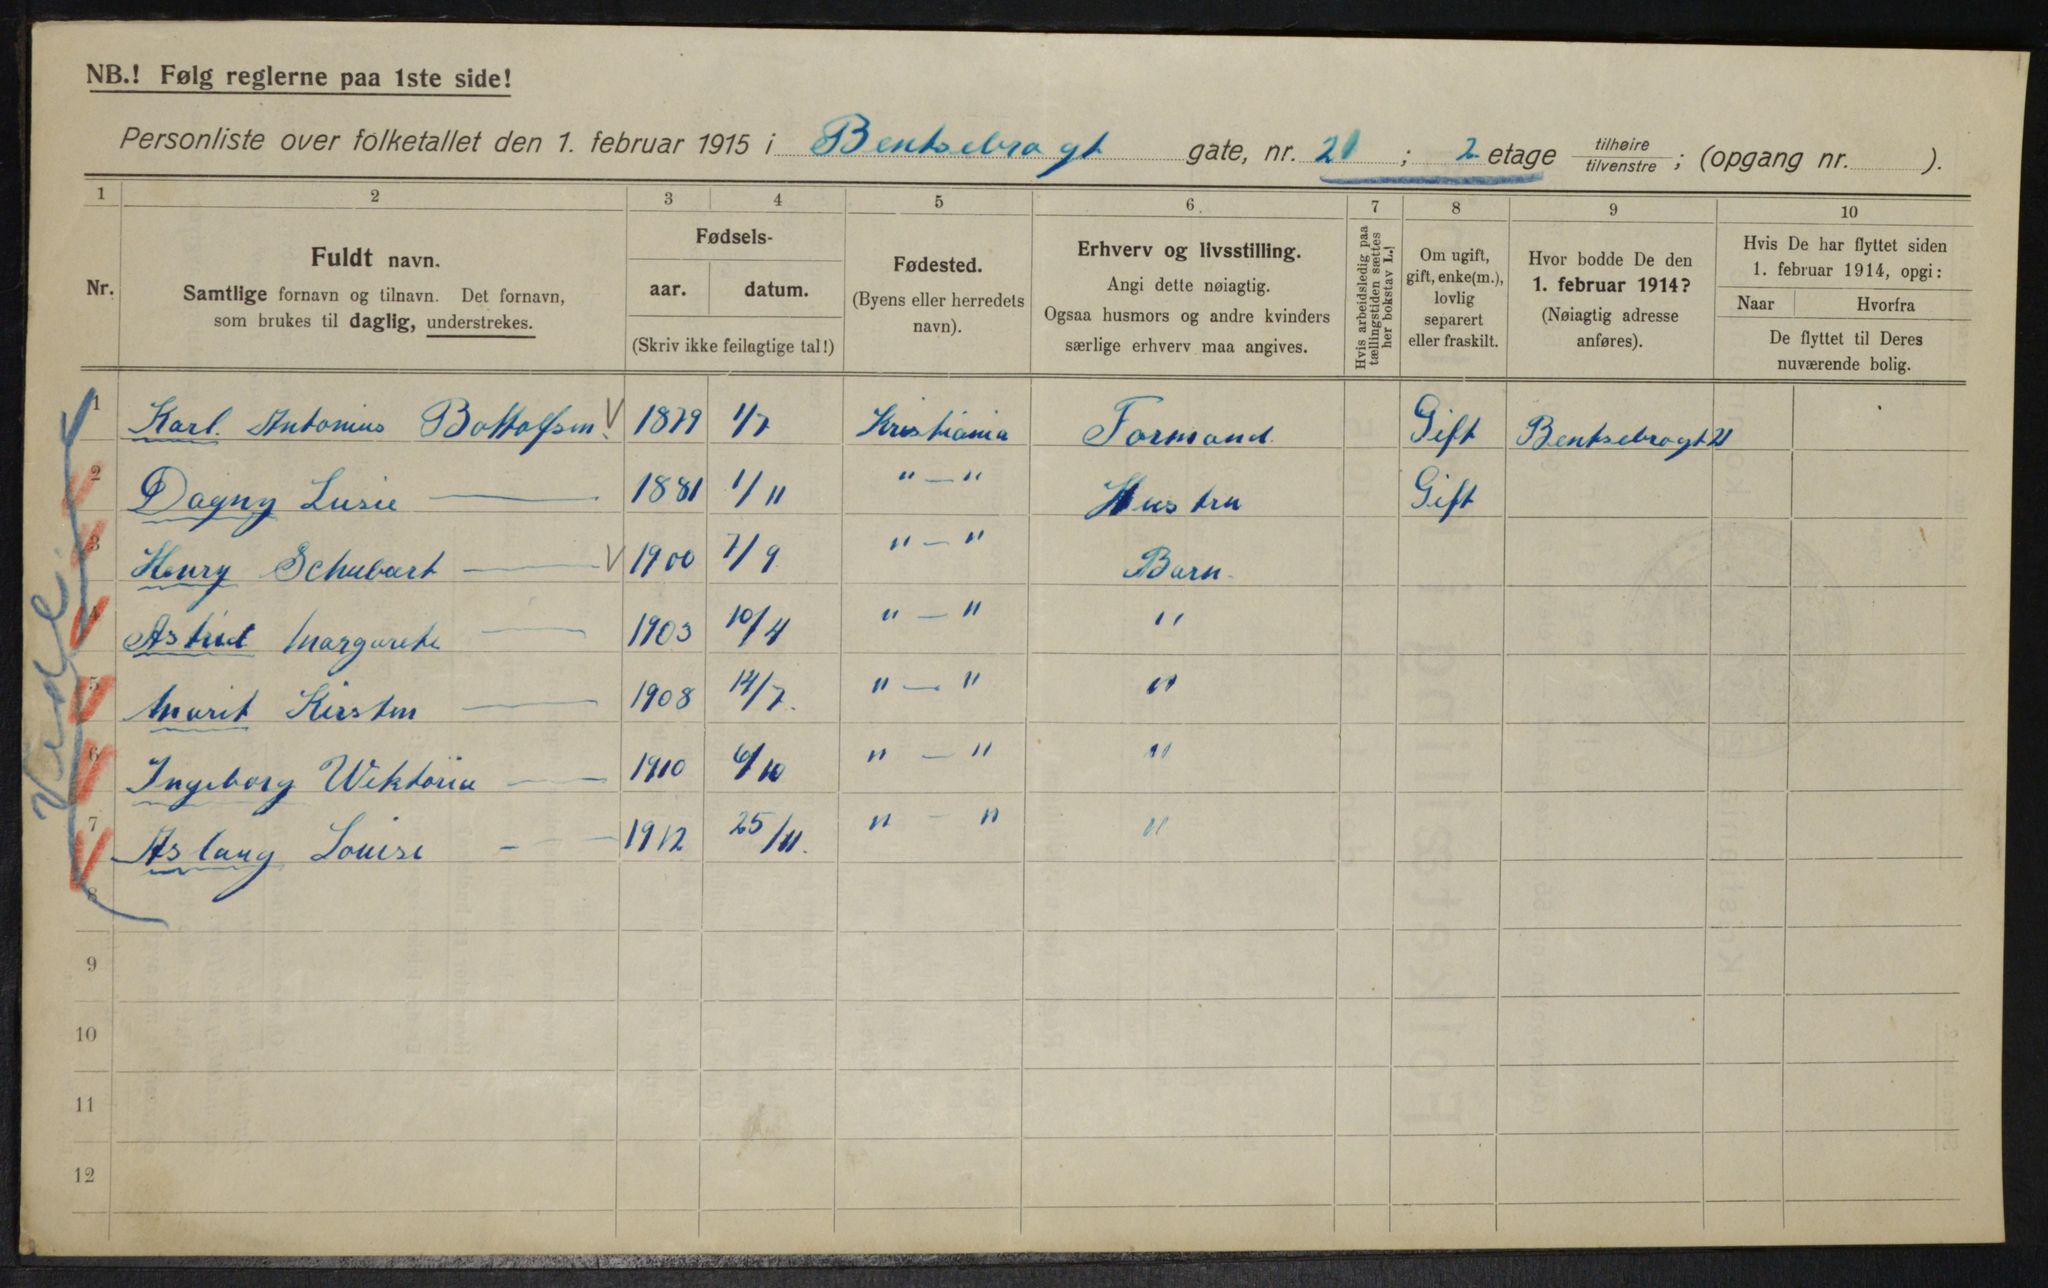 NB.! Følg reglerne paa 1ste side!
Personliste over folketallet den 1. februar 1915 i Bentsebrogt gate, nr. 21 ; 2 etage tilhøire/tilvenstre ; (opgang nr. ).
1 2 3 4 5 6 7 8 9 10
Nr.
Fuldt navn.
Samtlige fornavn og tilnavn. Det fornavn,
som brukes til daglig, understrekes.
Fødsels-
aar. datum.
(Skriv ikke feilagtige tal!)
Fødested.
(Byens eller herredets
navn).
Erhverv og livsstilling.
Angi dette nøiagtig.
Ogsaa husmors og andre kvinders
særlige erhverv maa angives.
Hvis arbeidsledig paa
tællingstiden sættes
her bokstav L.!
Om ugift,
gift, enke(m.),
lovlig
separert
eller fraskilt.
Hvor bodde De den
1. februar 1914?
(Nøiagtig adresse
anføres).
Hvis De har flyttet siden
1. februar 1914, opgi:
Naar Hvorfra
De flyttet til Deres
nuværende bolig.
1 Karl. Antonius Bottolfsen. 1879 1/7 Kristiania Formand. Gift Bentsebrogt 21
2 Dagny Lusie — 1881 1/11 " — " Hustru Gift
3 Henry Schubart — 1900 7/9 " — " Barn.
4 Astrid Margarete — 1903 10/4 " — " "
5 Marit Kirsten — 1908 14/7. " — " "
6 Ingeborg Wiktoria — 1910 6/10 " — " "
7 Aslaug Louise - — 1912 25/11. " — " "
8
9
10
11
12